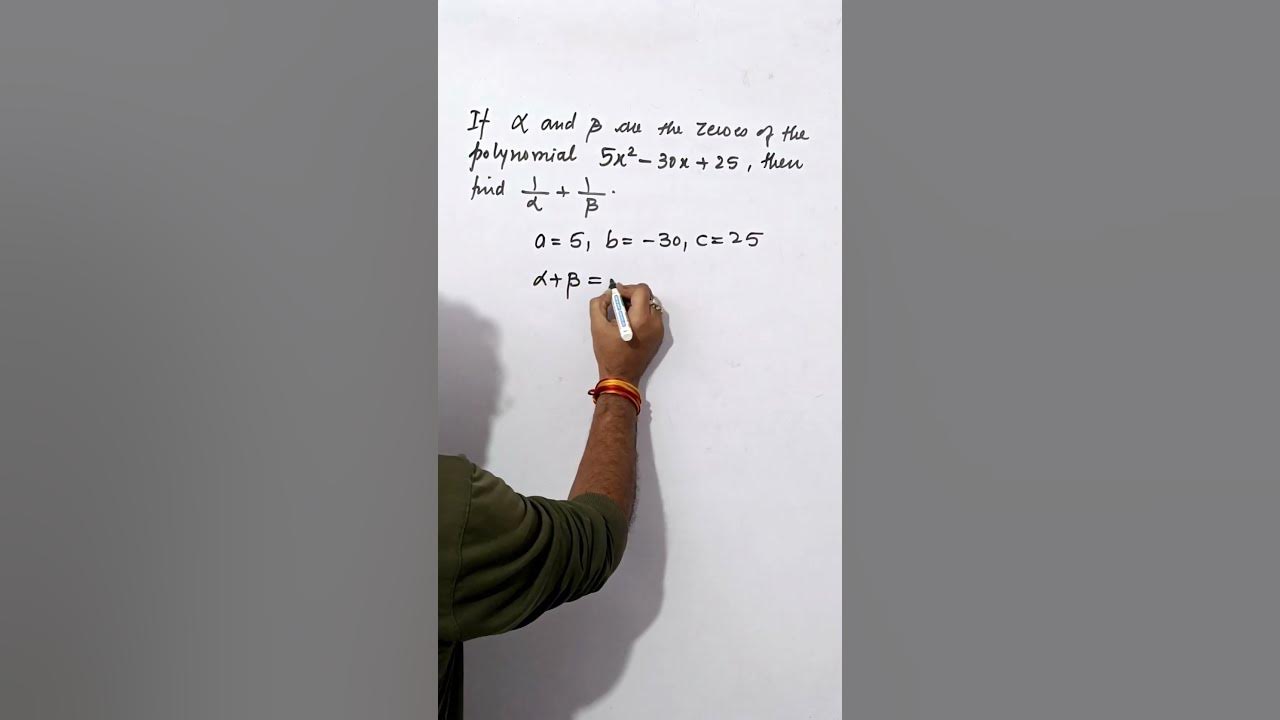 If α and β are the zeroes of the
polynomial 5x² - 30x + 25, then
find 1/α + 1/β.
a = 5, b = -30, c = 25
α + β =